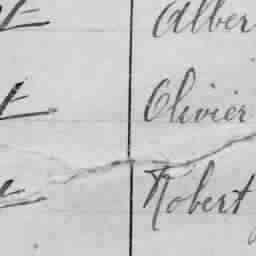 Alber
Olivier
Robert